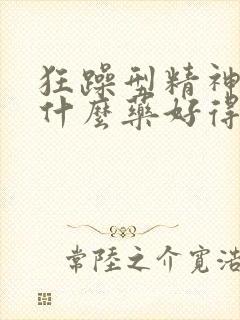 狂躁型精神
什麼藥好得
常陸之介寬浩